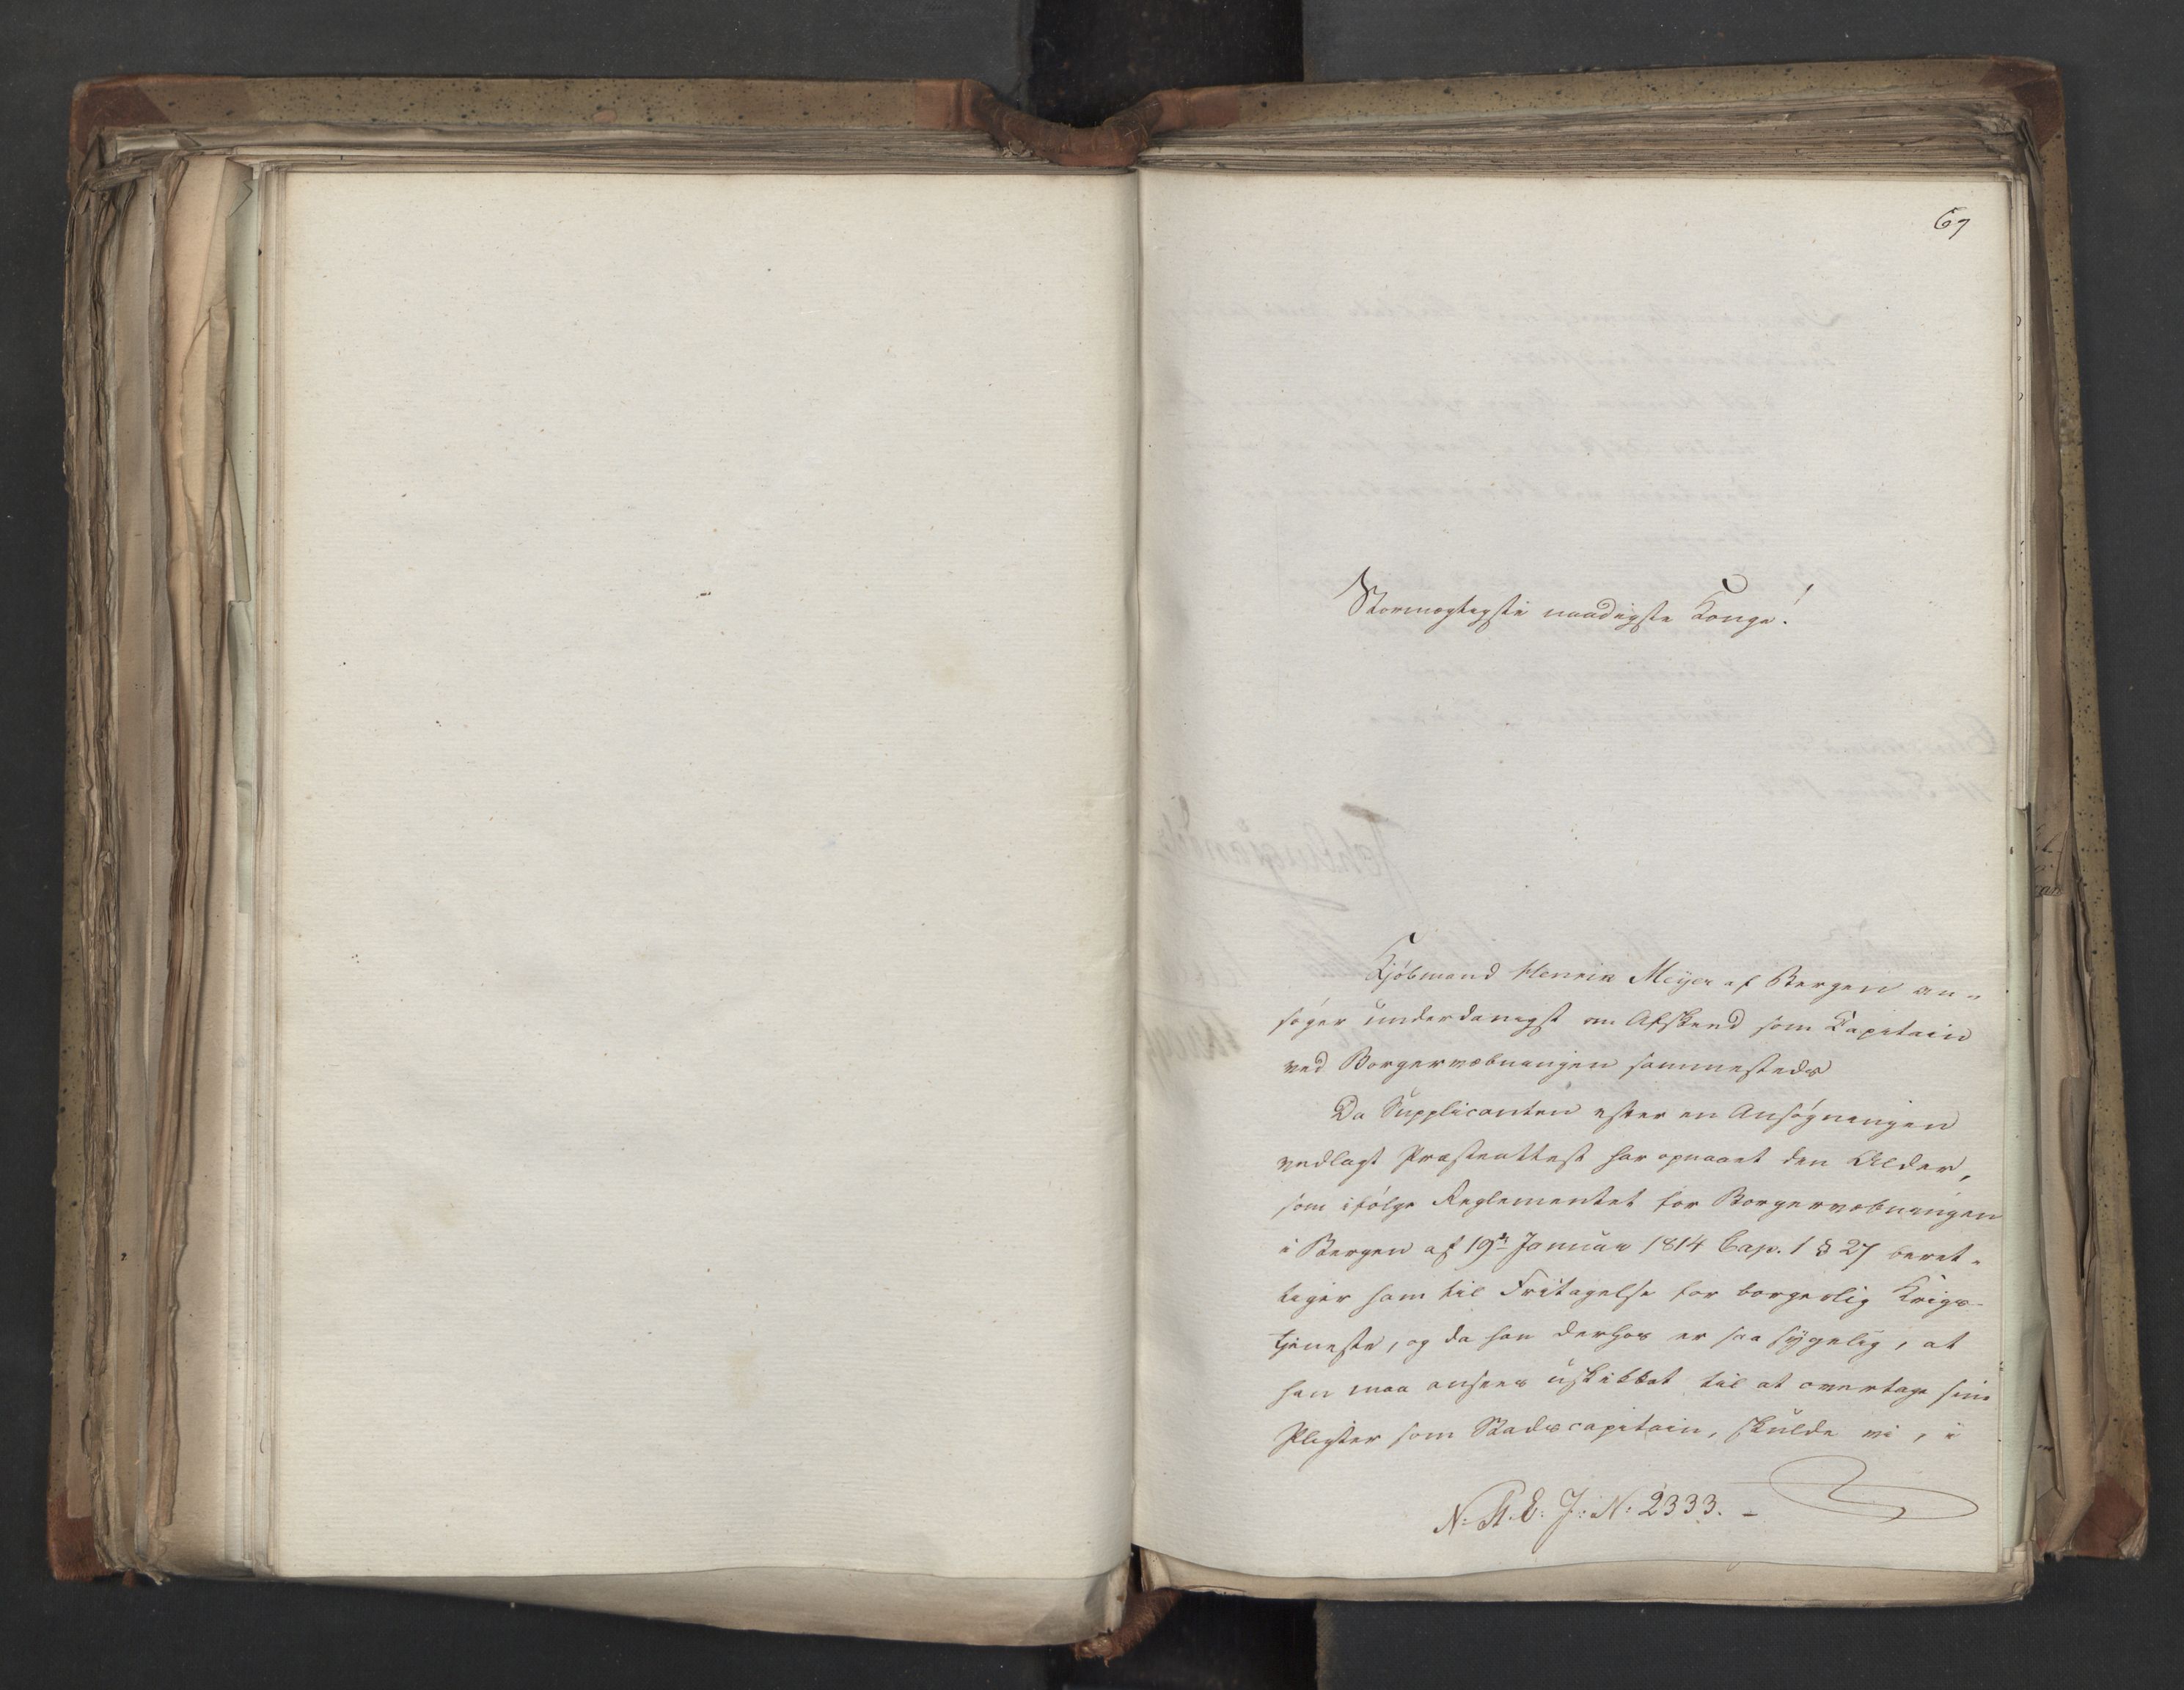 67
Stormægtigste naadigste Konge!
Kjøbmand Henrik Meyer af Bergen an-
søger underdanigst om Afskeed som Capitain
ved Borgervæbningen sammesteds
Da Supplicanten efter en Ansøgningen
vedlagt Præsteattest har opnaaet den Alder,
som ifølge Reglementet for Borgervæbningen
i Bergen af 19de Januar 1814 Cap. 1 § 27 beret-
tiger ham til Fritagelse for borgerlig Krigs-
tjeneste, og da han derhos er saa sygelig, at
han maa ansees uskikket til at overtage sine
Pligter som Stadscapitain, skulde vi, i
N. St. E. J: N: 2333. -